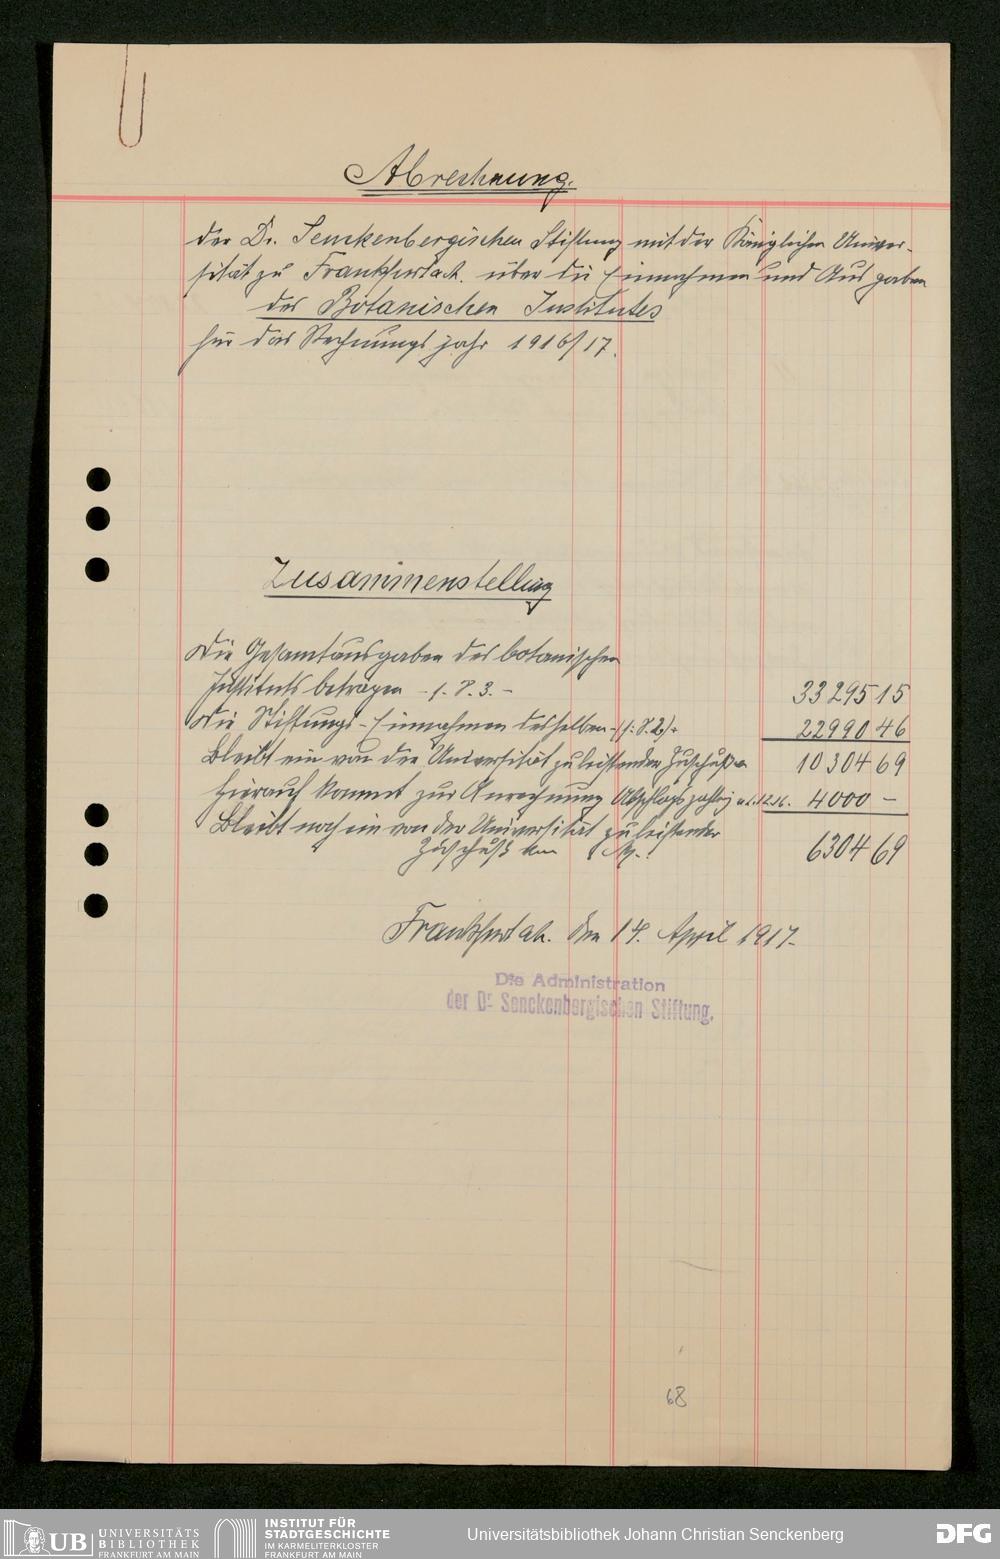 Abrechnung.
der Dr. Senckenbergischen Stiftung mit der Königlichen Univer-
sität zu Frankfurt a.M. über die Einnahmen und Ausgaben
des Botanischen Institutes
für das Rechnungsjahr 1916/17.
Zusammenstellung
Die Gesamtausgaben des botanischen
Instituts betragen - s. S. 3. - 33295 15
Die Stiftungs-Einnahmen desselben - (s. S. 2) - 22990 46
Bleibt ein von der Universität zu leistender Zuschuß 10304 69
Hierauf kommt zur Anrechnung Abschlagszahlg 4000 -
Bleibt noch ein von der Universität zu leistender
Zuschuß von M. 6304 69
Frankfurt a.M. den 14. April 1917.
Die Administration
der Dr. Senckenbergischen Stiftung.
68
UB UNIVERSITÄTS
BIBLIOTHEK
FRANKFURT AM MAIN
INSTITUT FÜR
STADTGESCHICHTE
IM KARMELITERKLOSTER
FRANKFURT AM MAIN
Universitätsbibliothek Johann Christian Senckenberg
DFG